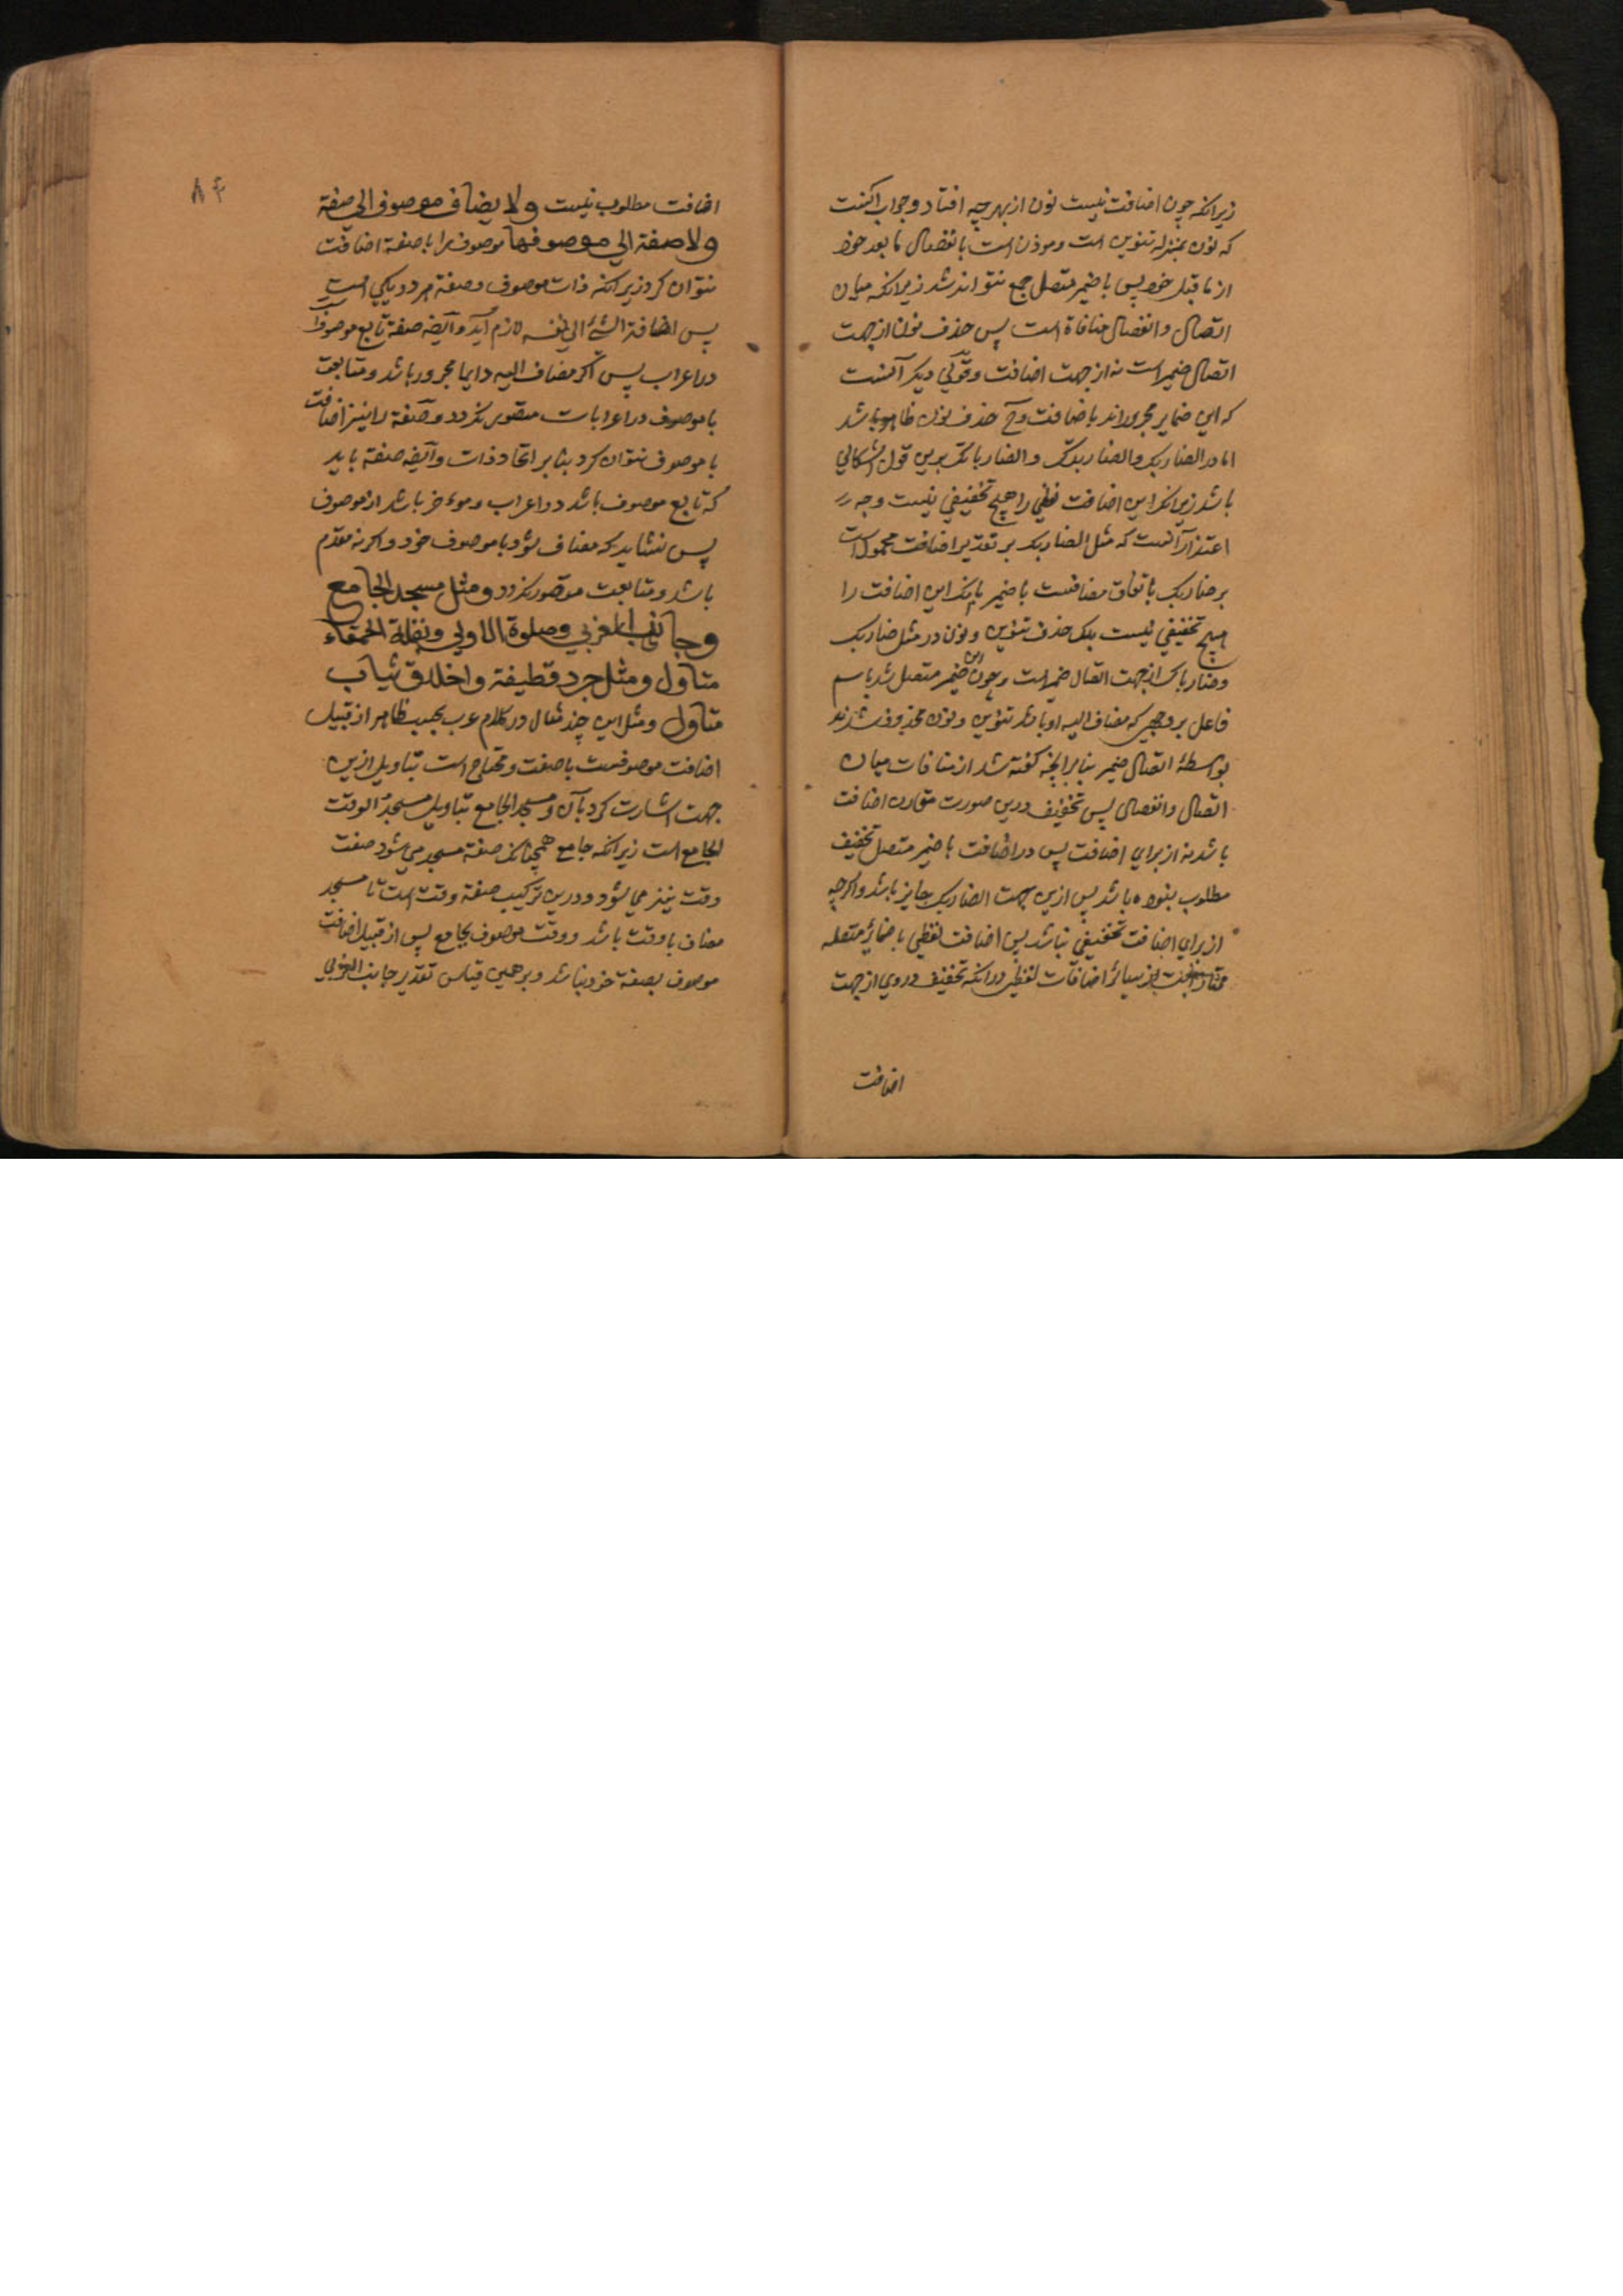 زیرانکه چون اضافت نیست نون از بهر چه افتاد و جواب آنست
که نون بمنزله تنوین است و موذن است بانفصال ما بعد خود
از ما قبل خود پس با ضمیر متصل جمع نتواند شد زیرانکه میان
اتصال و انفصال منافاة است پس حذف نون از جهت
اتصال ضمیر است نه از جهت اضافت و قولی دیگر آنست
که این ضمایر مجرور اند باضافت و ح حذف نون ظاهر باشد
اما در الضاربک والضاربک والضاربانک برین قول اشکالی
باشد زیرانکه این اضافت لفظی را هیچ تخفیفی نیست وجه
اعتذار آنست که مثل الضاربک بر تقدیر اضافت محمول است
بر ضاربک باتفاق مضافست با ضمیر بانک این اضافت را
هیچ تخفیفی نیست بلک حذف تنوین و نون در مثل ضاربک
و ضارباک از جهت اتصال ضمیر است و چون این ضمیر متصل شد باسم
فاعل بر وجهی که مضاف الیه او باشد تنوین و نون محذوف شدند
بواسطهٔ اتصال ضمیر بنابر انچه گفته شد از منافات میان
اتصال و انفصال پس تخفیف درین صورت مقارن اضافت
باشد نه از برای اضافت پس در اضافت با ضمیر متصل تخفیف
مطلوب نبوده باشد پس ازین جهت الضاربک جایز باشد و اکرچه
از برای اضافت تخفیفی نباشد پس اضافت لفظی با ضمائر متصله
ممتاز است از سائر اضافات لفظی در انکه تخفیف در وی از جهت
اضافت
۸۴
اضافت مطلوب نیست ولا یضاف موصوف الی صفة
ولا صفة الی موصوفها موصوف را با صفة اضافت
نتوان کرد زیرانکه ذات موصوف و صفة هر دو یکی است
پس اضافة الشئ الی نفسه لازم آید و ایضه صفة تابع موصوفست
در اعراب پس اکر مضاف الیه دایما مجرور باشد و متابعت
با موصوف در اعرابات متصور نکردد و صفة را نیز اضافت
با موصوف نتوان کرد بنابر اتحاد ذات و ایضه صفة باید
که تابع موصوف باشد در اعراب و موءخر باشد از موصوف
پس نشاید که مضاف شود با موصوف خود و اکر نه مقدم
باشد و متابعت متصور نکردد ومثل مسجد الجامع
وجانب الغربی وصلوة الاولی وبقلة الحمقاء
متاول ومثل جرد قطیفة واخلاق ثیاب
متاول و مثل این چند مثال در کلام عرب بحسب ظاهر از قبیل
اضافت موصوفست با صفت و محتاج است بتاویل ازین
جهت اشارت کرد بآن و مسجد الجامع بتاویل مسجد الوقت
الجامع است زیرانکه جامع همچنانکه صفة مسجد می شود صفت
وقت نیز می شود و درین ترکیب صفة وقت است تا مسجد
مضاف با وقت باشد و وقت موصوف بجامع پس از قبیل اضافت
موصوف بصفة خود نباشد و بر همین قیاس تقدیر جانب الغربی